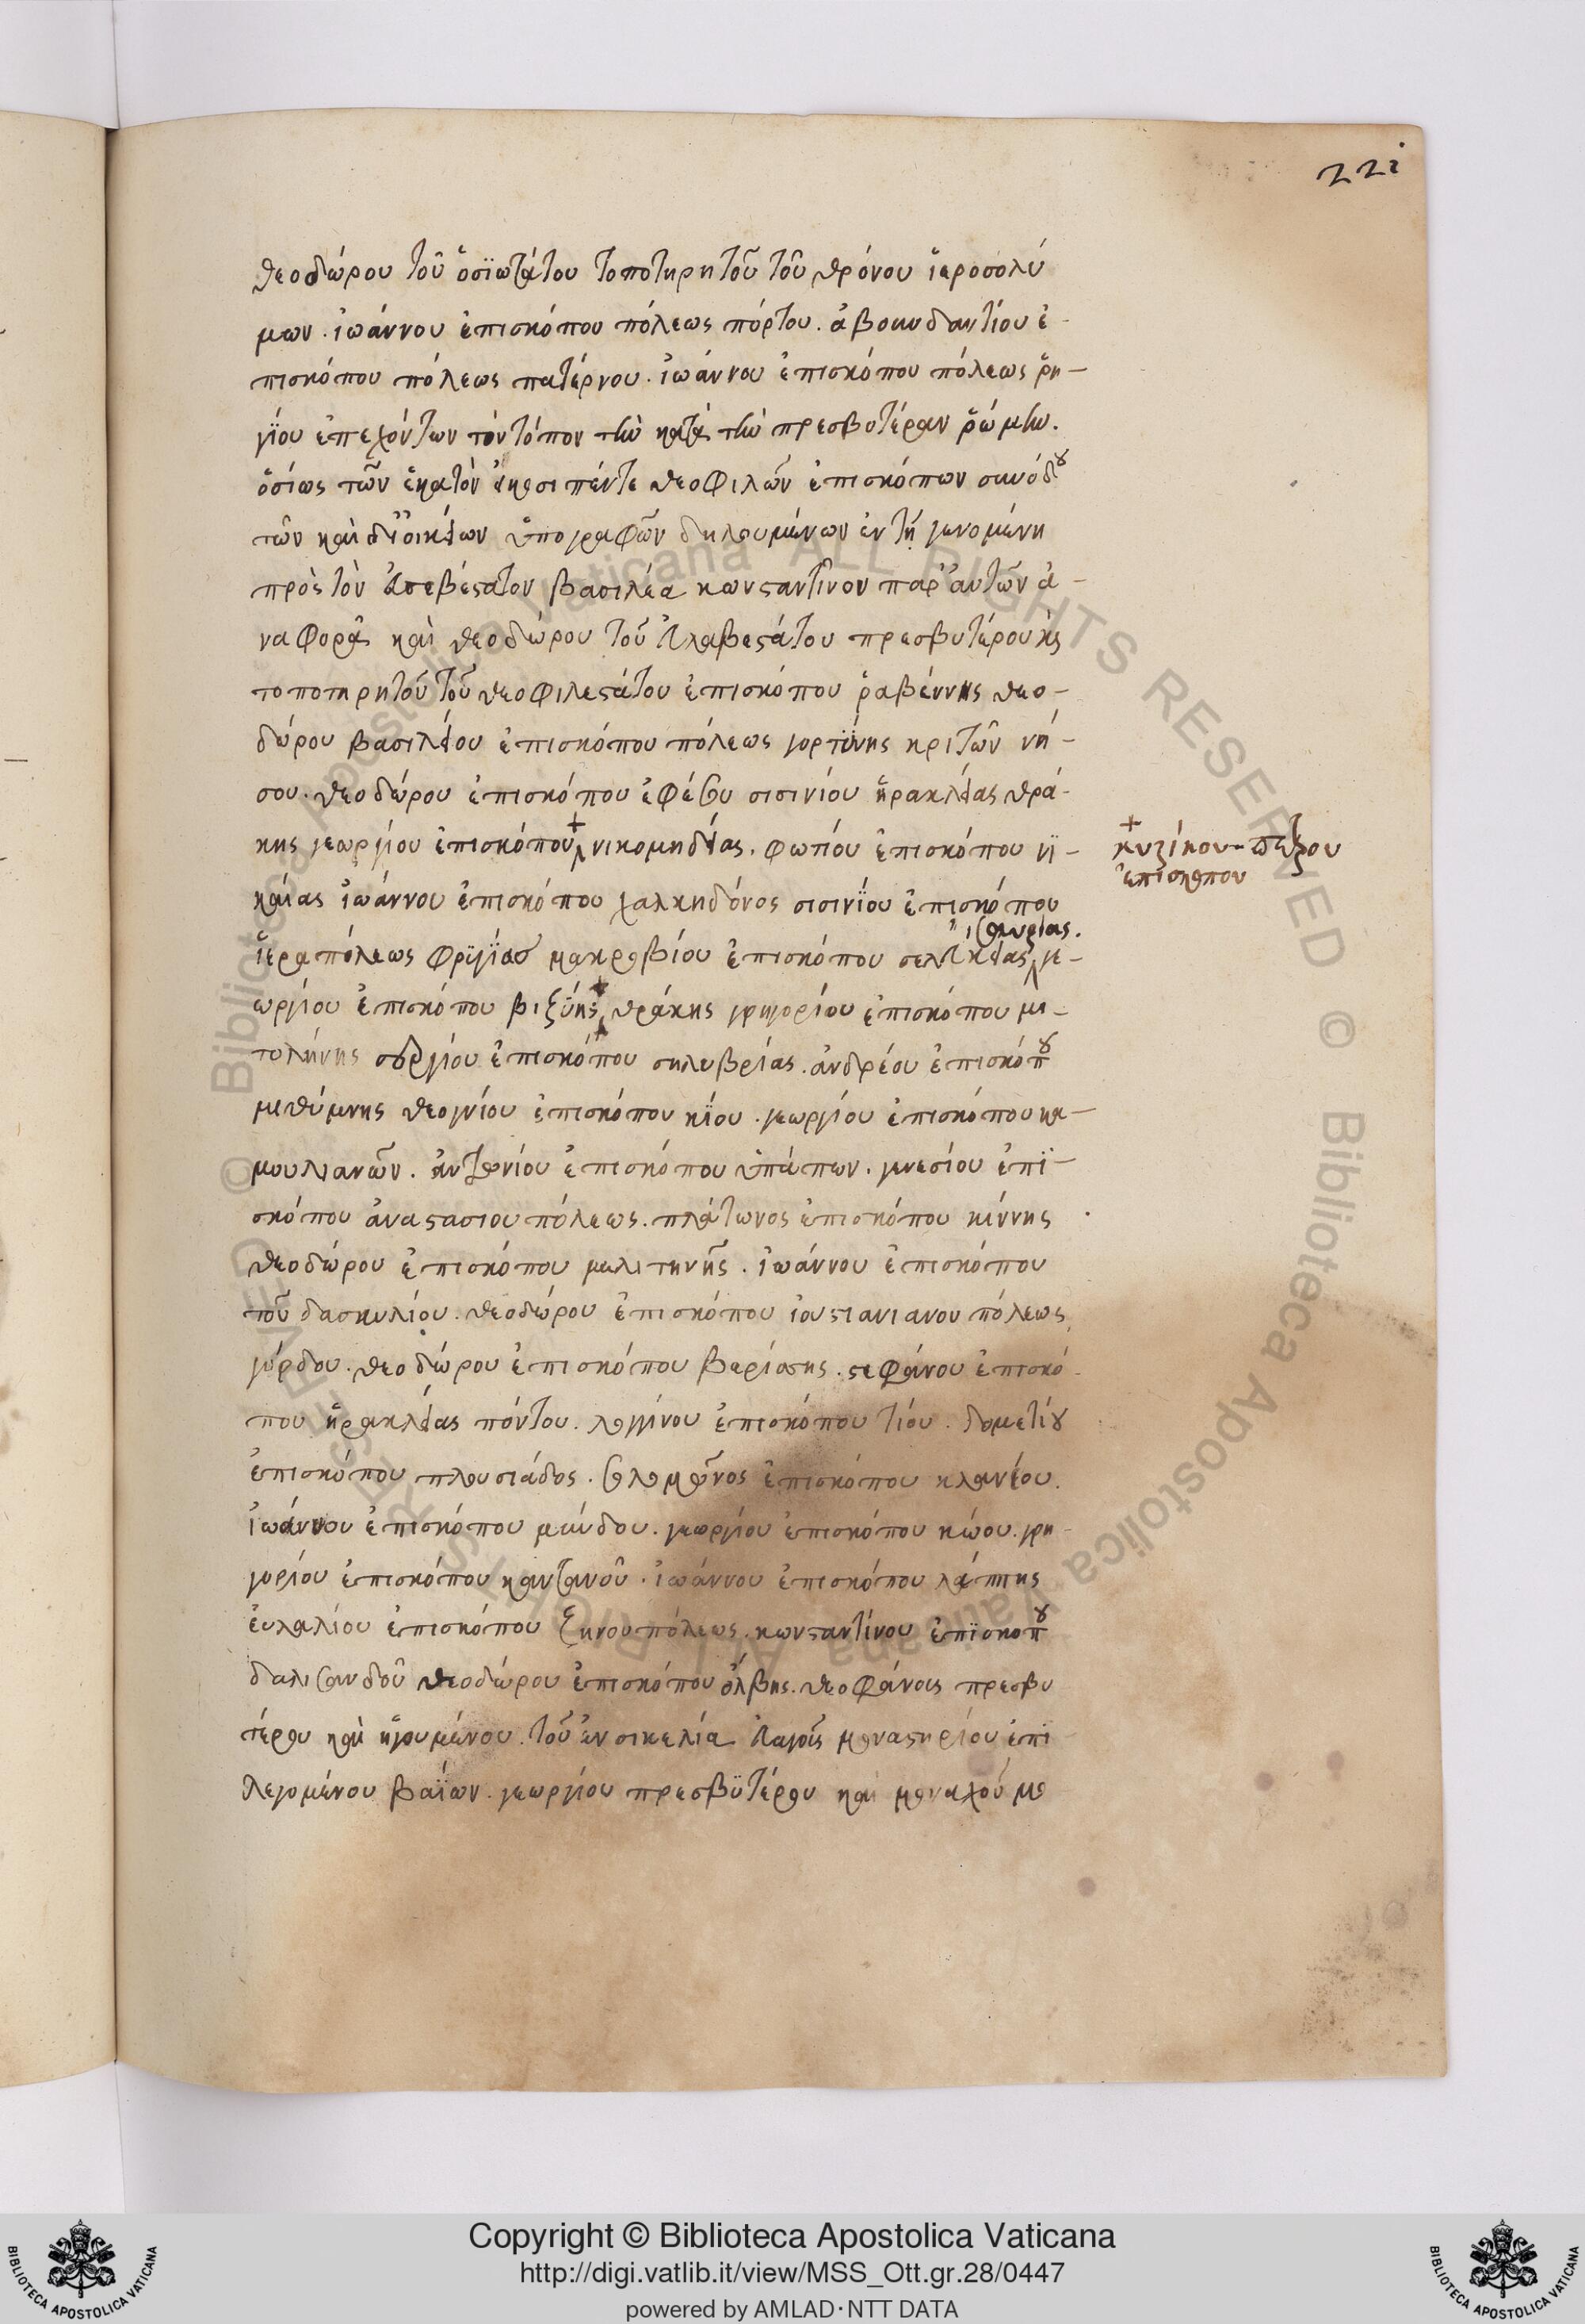 221
θεοδώρου τοῦ ὁσϊωτάτου τοποτηρητοῦ τοῦ θρόνου ἱεροσολύ
μων. ἰωάννου ἐπισκόπου πόλεως πόρτου. ἀβουνδαντίου ἐ-
πισκόπου πόλεως πατέρνου. ἰωάννου ἐπισκόπου πόλεως ῥη-
γΐου ἐπεχόντων τὸν τόπον τὴν κατὰ τὴν πρεσβυτέραν ῥώμην.
ὁσίως τῶν ἑκατὸν εἴκοσι πέντε θεοφιλῶν ἐπισκόπων συνόδου
τῶν καὶ δι' οἰκείων ὑπογραφῶν δηλουμένων ἐν τῇ γενομένη
πρὸς τὸν εὐσεβέστατον βασιλέα κωνσταντῖνον παρ' αὐτῶν ἀ-
ναφορᾶ καὶ θεοδώρου τοῦ εὐλαβεστάτου πρεσβυτέρου καὶ
τοποτηρητοῦ τοῦ θεοφιλεστάτου ἐπισκόπου ῥαβέννης θεο-
δώρου βασιλείου ἐπισκόπου πόλεως γορτΰνης κριτῶν νή-
σου. θεοδώρου ἐπισκόπου ἐφέσου σισινίου ἡρακλείας θρά-
κης γεωργίου ἐπισκόπου + νικομηδείας. φωτίου ἐπισκόπου νϊ-
+ κυζίκου - πέτρου
ἐπισκόπου
καίας ἰωάννου ἐπισκόπου χαλκηδόνος σισινΐου ἐπισκόπου
ἰσαυρίας.
ἱεραπόλεως φρϋγΐας μακροβίου ἐπισκόπου σελευκείας γε-
ωργίου ἐπισκόπου βιζύης θράκης γρηγορίου ἐπισκόπου μι-
τυλήνης σεργίου ἐπισκόπου σηλυβρίας. ἀνδρέου ἐπισκόπου
μεθύμνης θεογνίου ἐπισκόπου κΐου. γεωργίου ἐπισκόπου κα-
μουλιανῶν. ἀντωνίου ἐπισκόπου ὑπάπων. γενεσίου ἐπϊ-
σκόπου ἀναστασιουπόλεως. πλάτωνος ἐπισκόπου κίννης
θεοδώρου ἐπισκόπου μελιτηνῆς. ἰωάννου ἐπισκόπου
τοῦ δασκυλίου. θεοδώρου ἐπισκόπου ἰουστιανιανουπόλεως
γόρδου. θεοδώρου ἐπισκόπου βερίσσης. στεφάνου ἐπισκό-
που ἡρακλείας πόντου. λογγίνου ἐπισκόπου τίου. δομετίου
ἐπισκόπου πλουσιάδος. σολομῶνος ἐπισκόπου κλανέου.
ἰωάννου ἐπισκόπου μύνδου. γεωργίου ἐπισκόπου κώου. γρη-
γορίου ἐπισκόπου καντανοῦ. ἰωάννου ἐπισκόπου λάππης
εὐλαλίου ἐπισκόπου ζηνουπόλεως. κωνσταντίνου ἐπϊσκόπου
δαλισανδοῦ θεοδώρου ἐπισκόπου ὄλβης. θεοφάνους πρεσβυ
τέρου καὶ ἡγουμένου. τοῦ ἐν σικελία εὐαγοῦς μοναστηρίου ἐπϊ-
λεγομένου βαΐων. γεωργίου πρεσβϋτέρου καὶ μοναχοῦ μο
Copyright © Biblioteca Apostolica Vaticana
http://digi.vatlib.it/view/MSS_Ott.gr.28/0447
powered by AMLAD·NTT DATA